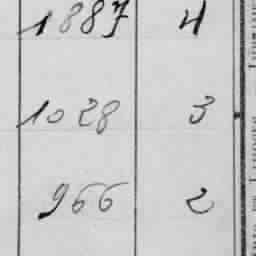 1887 4
1028 3
966 2